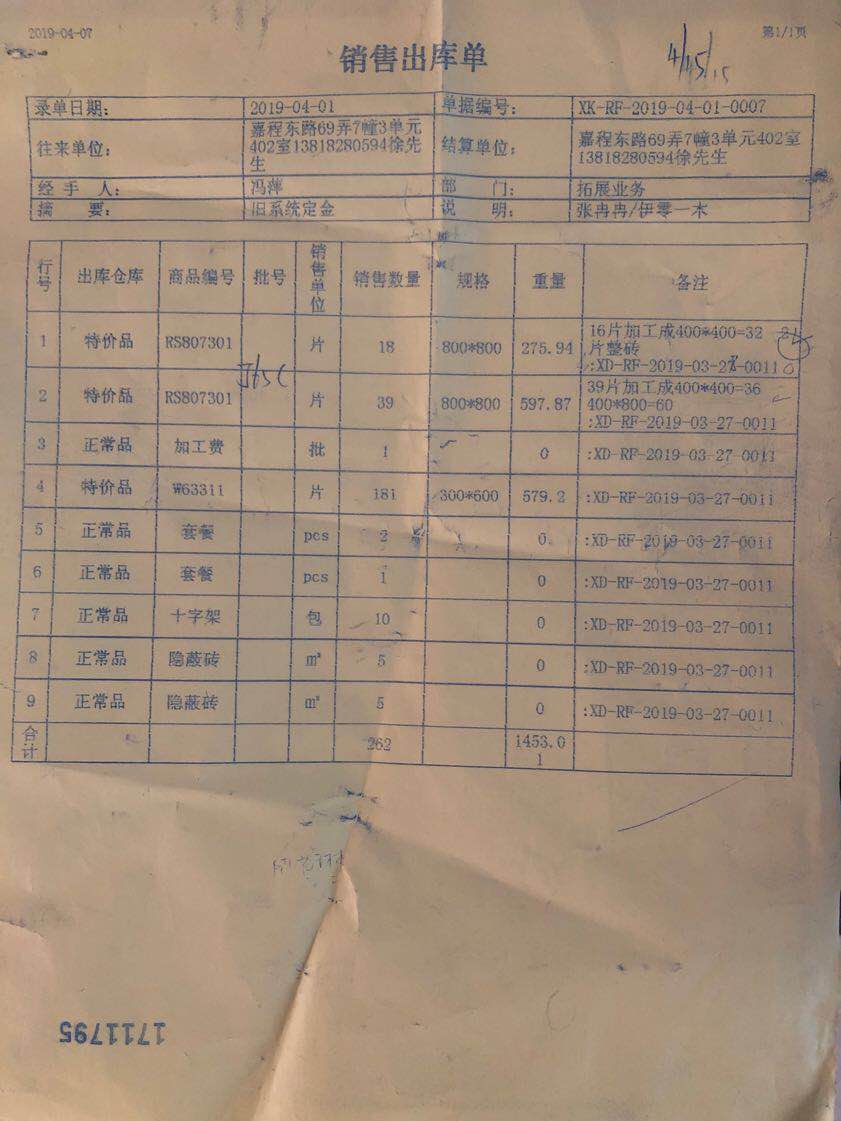 2019-04-07
第1/1页
销售出库单
录单日期: 2019-04-01 单据编号: XK-RF-2019-04-01-0007
往来单位: 嘉程东路69弄7幢3单元402室13818280594徐先生 结算单位: 嘉程东路69弄7幢3单元402室13818280594徐先生
经手人: 冯萍 部门: 拓展业务
摘要: 旧系统定金 说明: 张冉冉/伊零一木
行号 出库仓库 商品编号 批号 销售单位 销售数量 规格 重量 备注
1 特价品 RS807301 片 18 800*800 275.94 16片加工成400*400=32
片整砖
:XD-RF-2019-03-27-0011
2 特价品 RS807301 片 39 800*800 597.87 39片加工成400*400=36
400*800=60
:XD-RF-2019-03-27-0011
3 正常品 加工费 批 1 0 :XD-RF-2019-03-27-0011
4 特价品 W63311 片 181 300*600 579.2 :XD-RF-2019-03-27-0011
5 正常品 套餐 pcs 2 0 :XD-RF-2019-03-27-0011
6 正常品 套餐 pcs 1 0 :XD-RF-2019-03-27-0011
7 正常品 十字架 包 10 0 :XD-RF-2019-03-27-0011
8 正常品 隐蔽砖 m² 5 0 :XD-RF-2019-03-27-0011
9 正常品 隐蔽砖 m² 5 0 :XD-RF-2019-03-27-0011
合计 262 1453.01
1711795